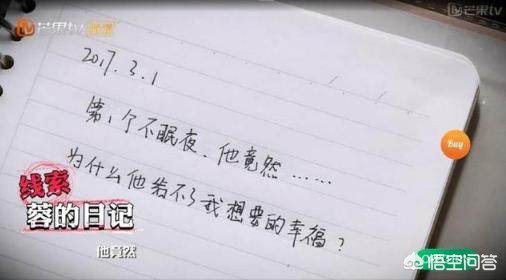 芒果tv
芒果tv
2017.3.1
第1个不眠夜、他竟然……
为什么他给不了我想要的幸福？
Buy
线索
蓉的日记
他竟然
悟空问答